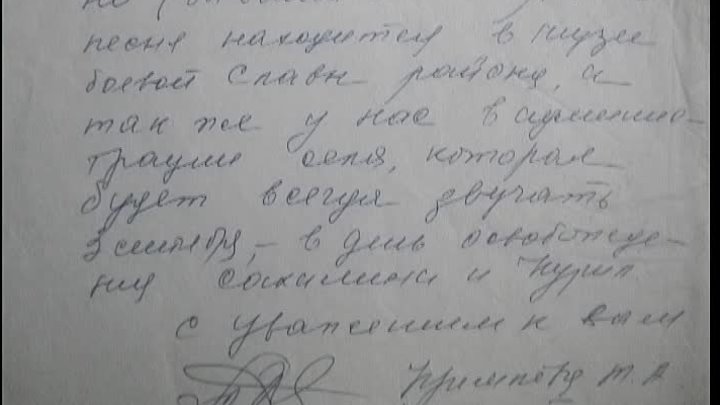 песня находится в музее
боевой славы района, а
так же у нас в админис-
трации села, которая
будет всегда звучать
3 сентября, - в день освобожде-
ния Сахалина и Курил
с уважением к вам
Т. А